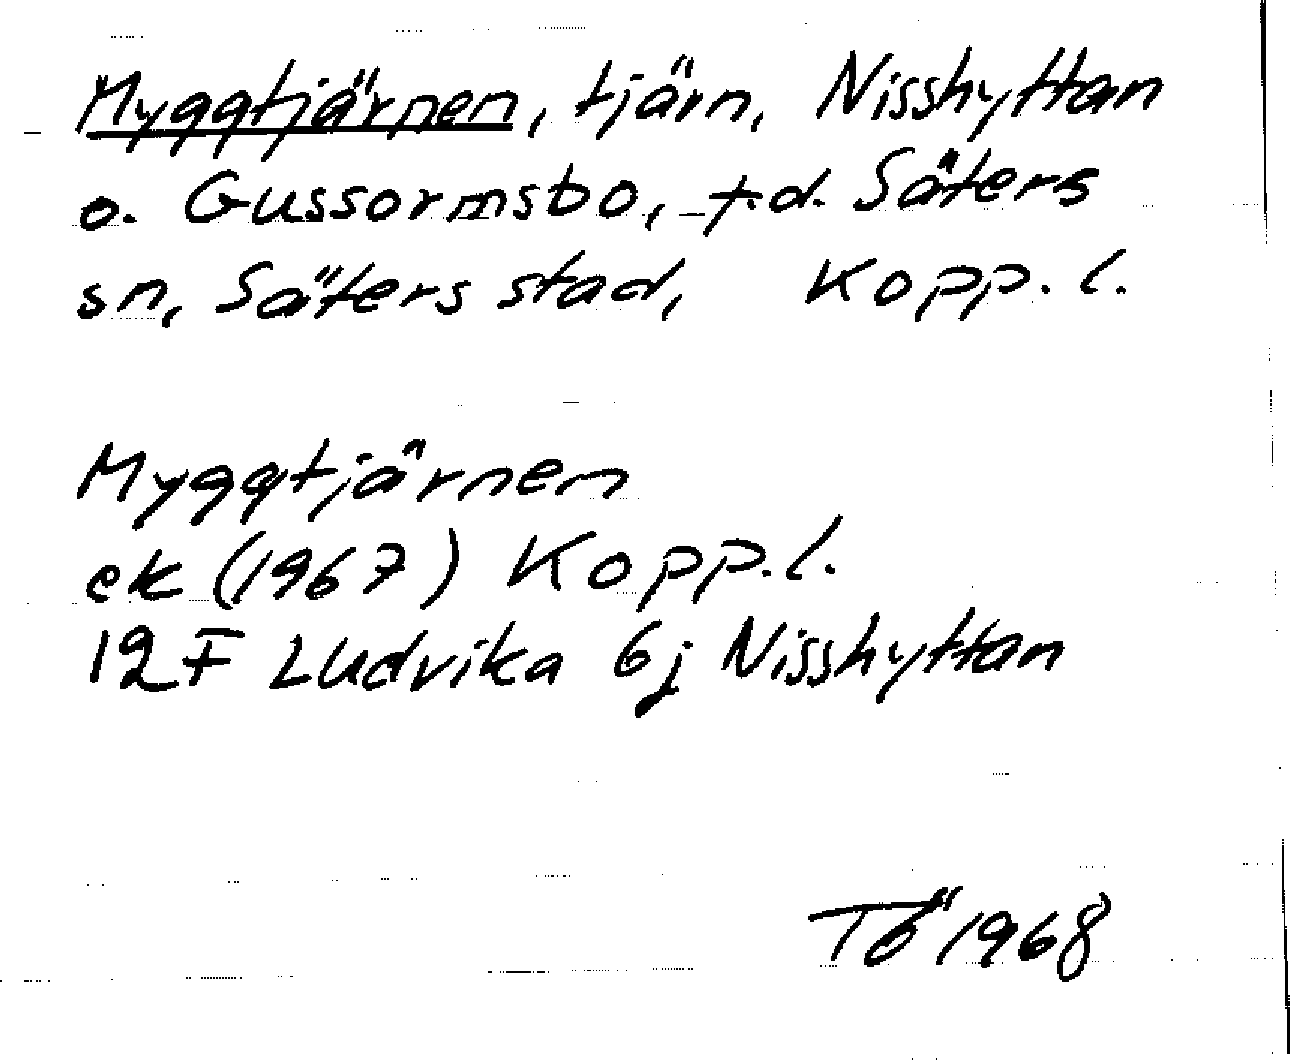 Myggtjärnen, tjärn, Nisshyttan
o. Gussormsbo, f.d. Säters
sn, Säters stad, Kopp. l.
Myggtjärnen
ek (1967) Kopp. l.
12F Ludvika 6j Nisshyttan
TÖ 1968